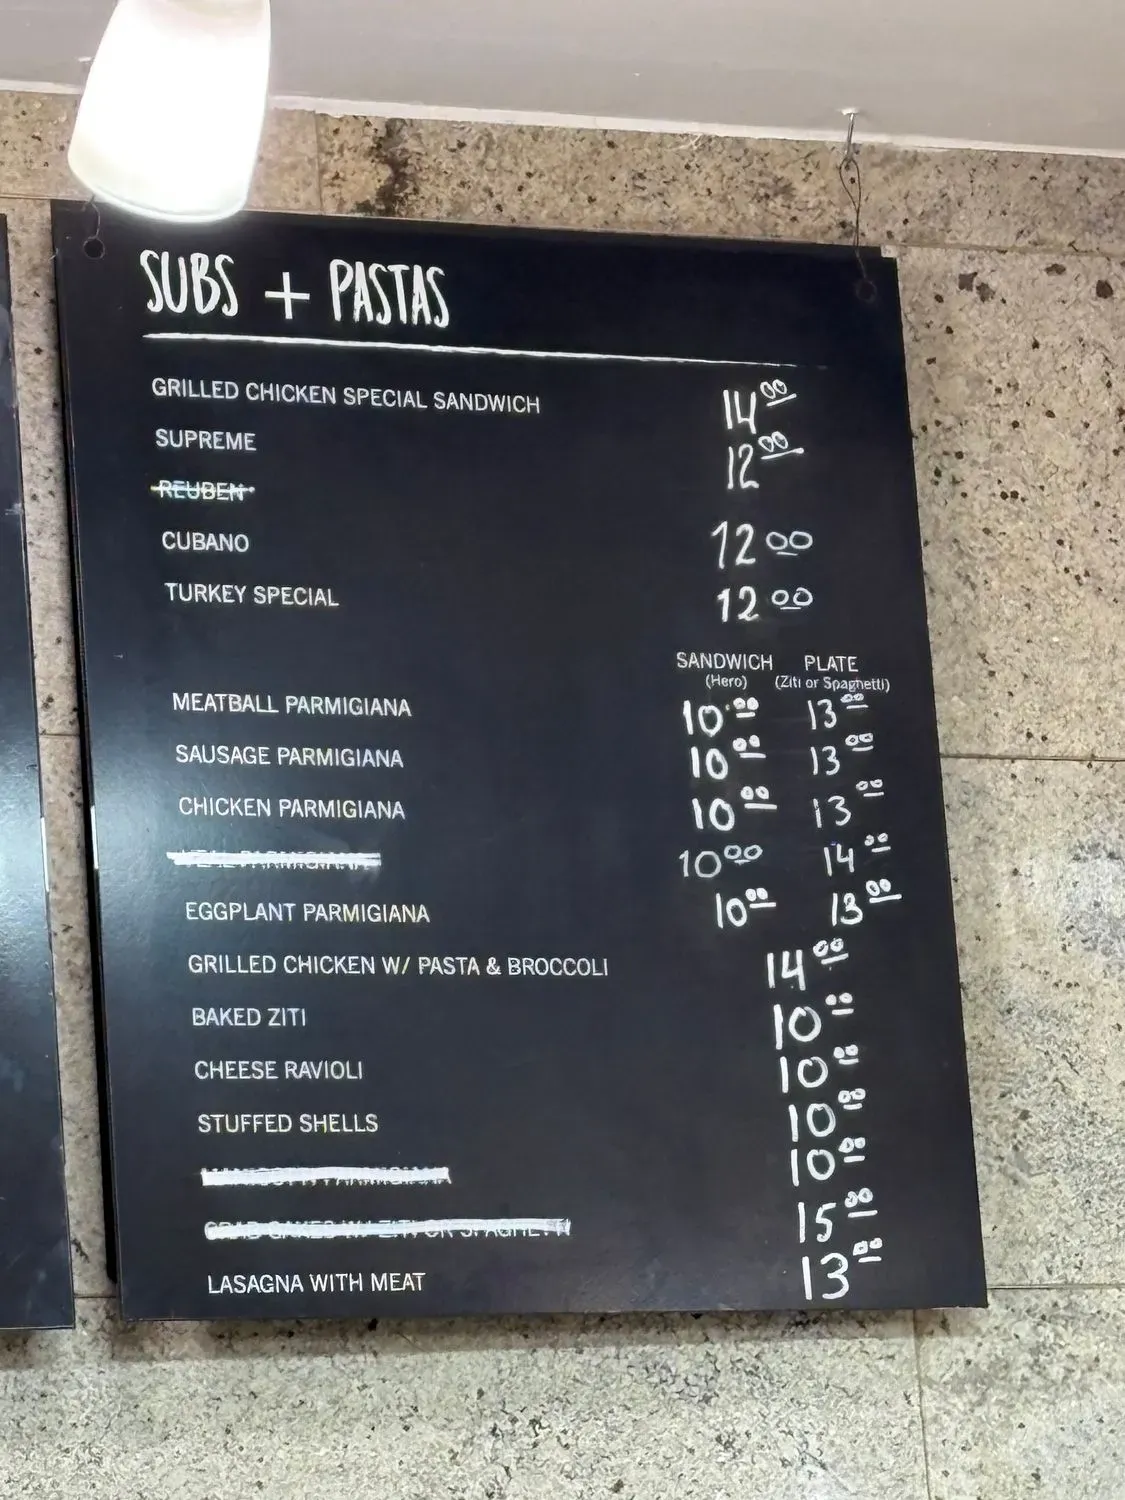 SUBS + PASTAS
GRILLED CHICKEN SPECIAL SANDWICH 14 00
SUPREME 12 00
REUBEN
CUBANO 12 00
TURKEY SPECIAL 12 00
SANDWICH PLATE
(Hero) (Ziti or Spaghetti)
MEATBALL PARMIGIANA 10.00 13 00
SAUSAGE PARMIGIANA 10 00 13 00
CHICKEN PARMIGIANA 10 00 13 00
VEAL PARMIGIANA 10 00 14 00
EGGPLANT PARMIGIANA 10 00 13 00
GRILLED CHICKEN W/ PASTA & BROCCOLI 14 00
BAKED ZITI 10 00
CHEESE RAVIOLI 10 00
STUFFED SHELLS 10 00
PARMIGIANA 10 00
CRAB CAKES W/ ZITI OR SPAGHETTI 15 00
LASAGNA WITH MEAT 13 00